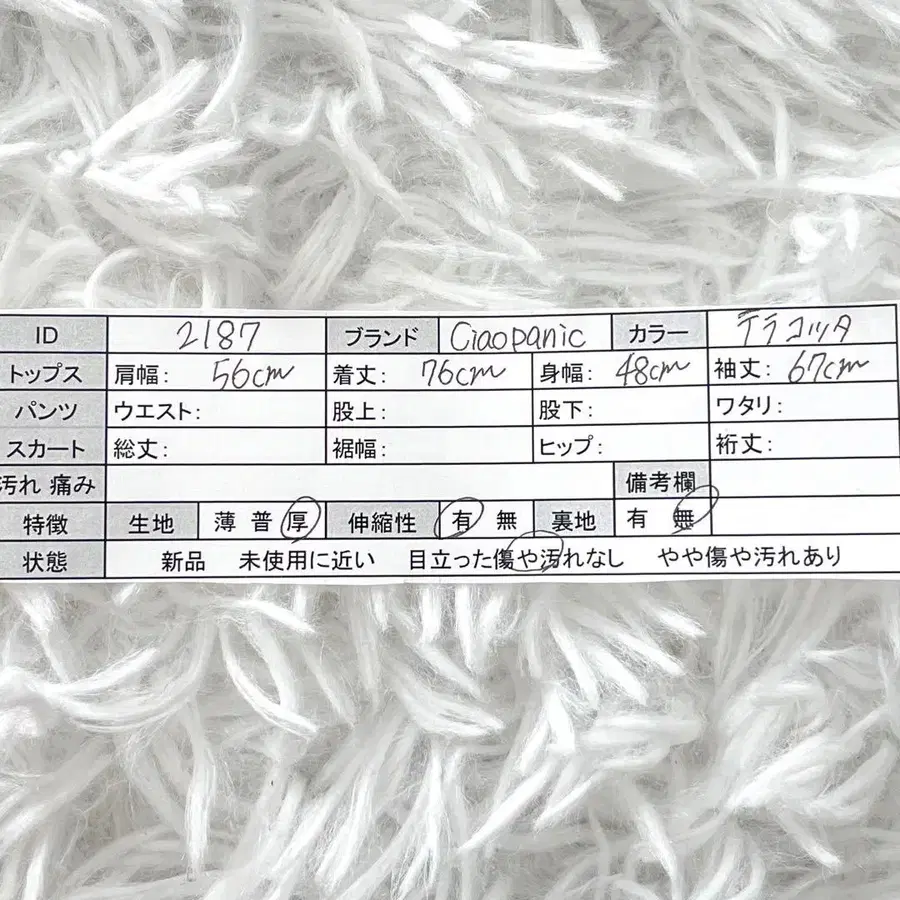 ID 2187 ブランド Ciaopanic カラー テラコッタ
トップス 肩幅: 56cm 着丈: 76cm 身幅: 48cm 袖丈: 67cm
パンツ ウエスト: 股上: 股下: ワタリ:
スカート 総丈: 裾幅: ヒップ: 裄丈:
汚れ 痛み 備考欄
特徴 生地 薄 普 厚 伸縮性 有 無 裏地 有 無
状態 新品 未使用に近い 目立った傷や汚れなし やや傷や汚れあり